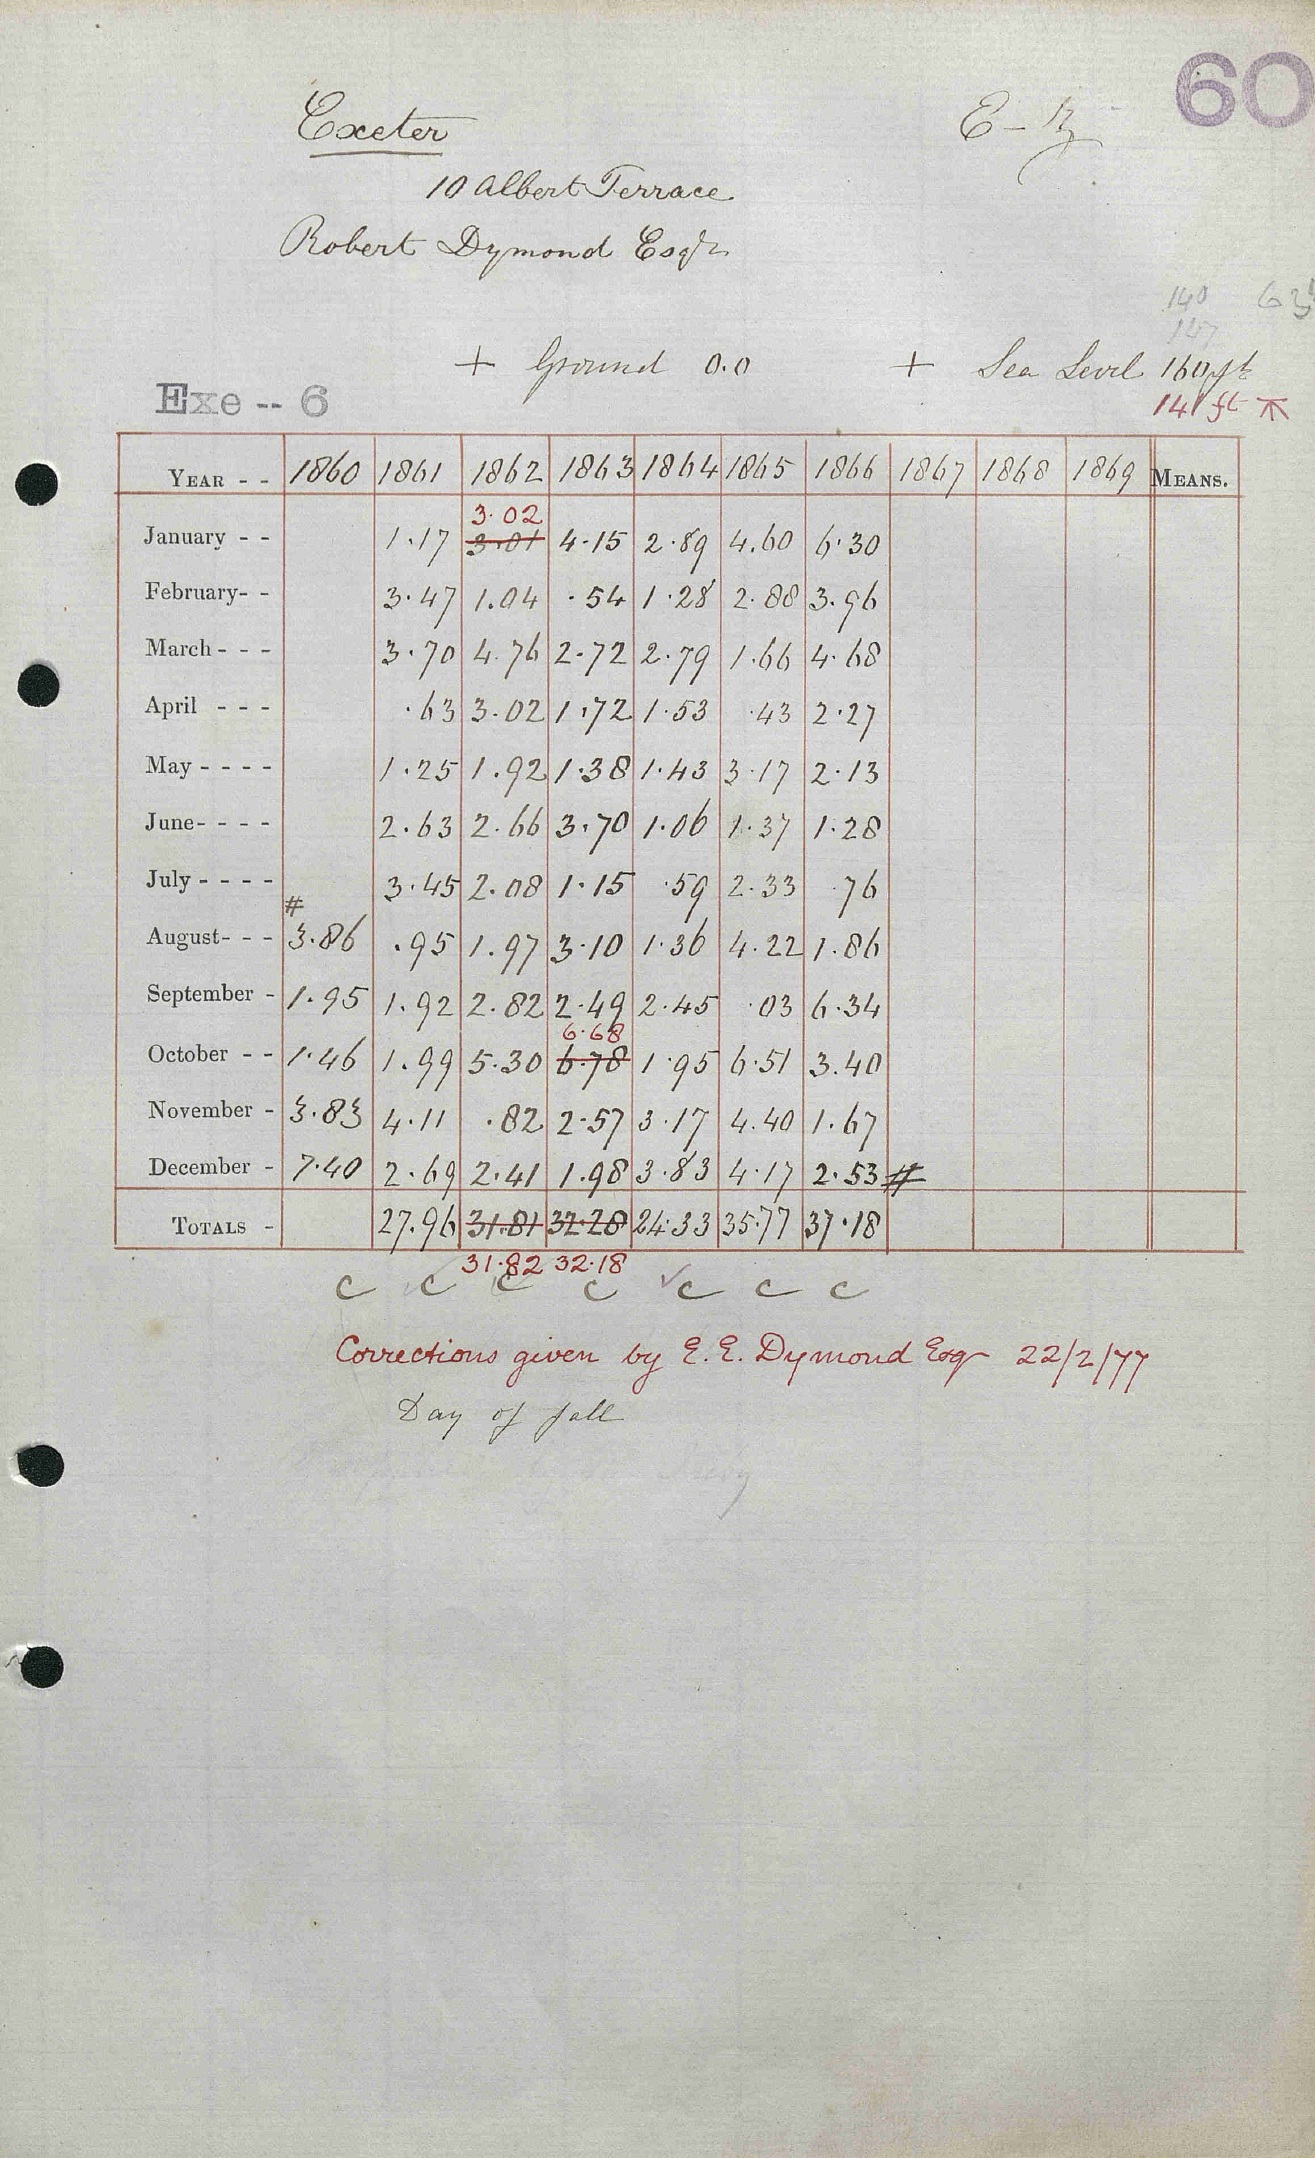 60
Exeter
10 Albert Terrace
Robert Dymond Esqr
140 63
147
+ Ground 0.0 + Sea Level 160 ft
141 ft
Exe -- 6
YEAR - - 1860 1861 1862 1863 1864 1865 1866 1867 1868 1869 MEANS.
3.02
January - - 1.17 3.01 4.15 2.89 4.60 6.30
February- - 3.47 1.04 .54 1.28 2.88 3.96
March - - - 3.70 4.76 2.72 2.79 1.66 4.68
April - - - .63 3.02 1.72 1.53 .43 2.27
May - - - - 1.25 1.92 1.38 1.43 3.17 2.13
June- - - - 2.63 2.66 3.70 1.06 1.37 1.28
July - - - - 3.45 2.08 1.15 .59 2.33 .76
#
August- - - 3.86 .95 1.97 3.10 1.36 4.22 1.86
September - 1.95 1.92 2.82 2.49 2.45 .03 6.34
6.68
October - - 1.46 1.99 5.30 6.78 1.95 6.51 3.40
November - 3.83 4.11 .82 2.57 3.17 4.40 1.67
December - 7.40 2.69 2.41 1.98 3.83 4.17 2.53 #
TOTALS - 27.96 31.81 32.28 24.33 35.77 37.18
31.82 32.18
c c c c c c c
Corrections given by E. E. Dymond Esq 22/2/77
Day of fall